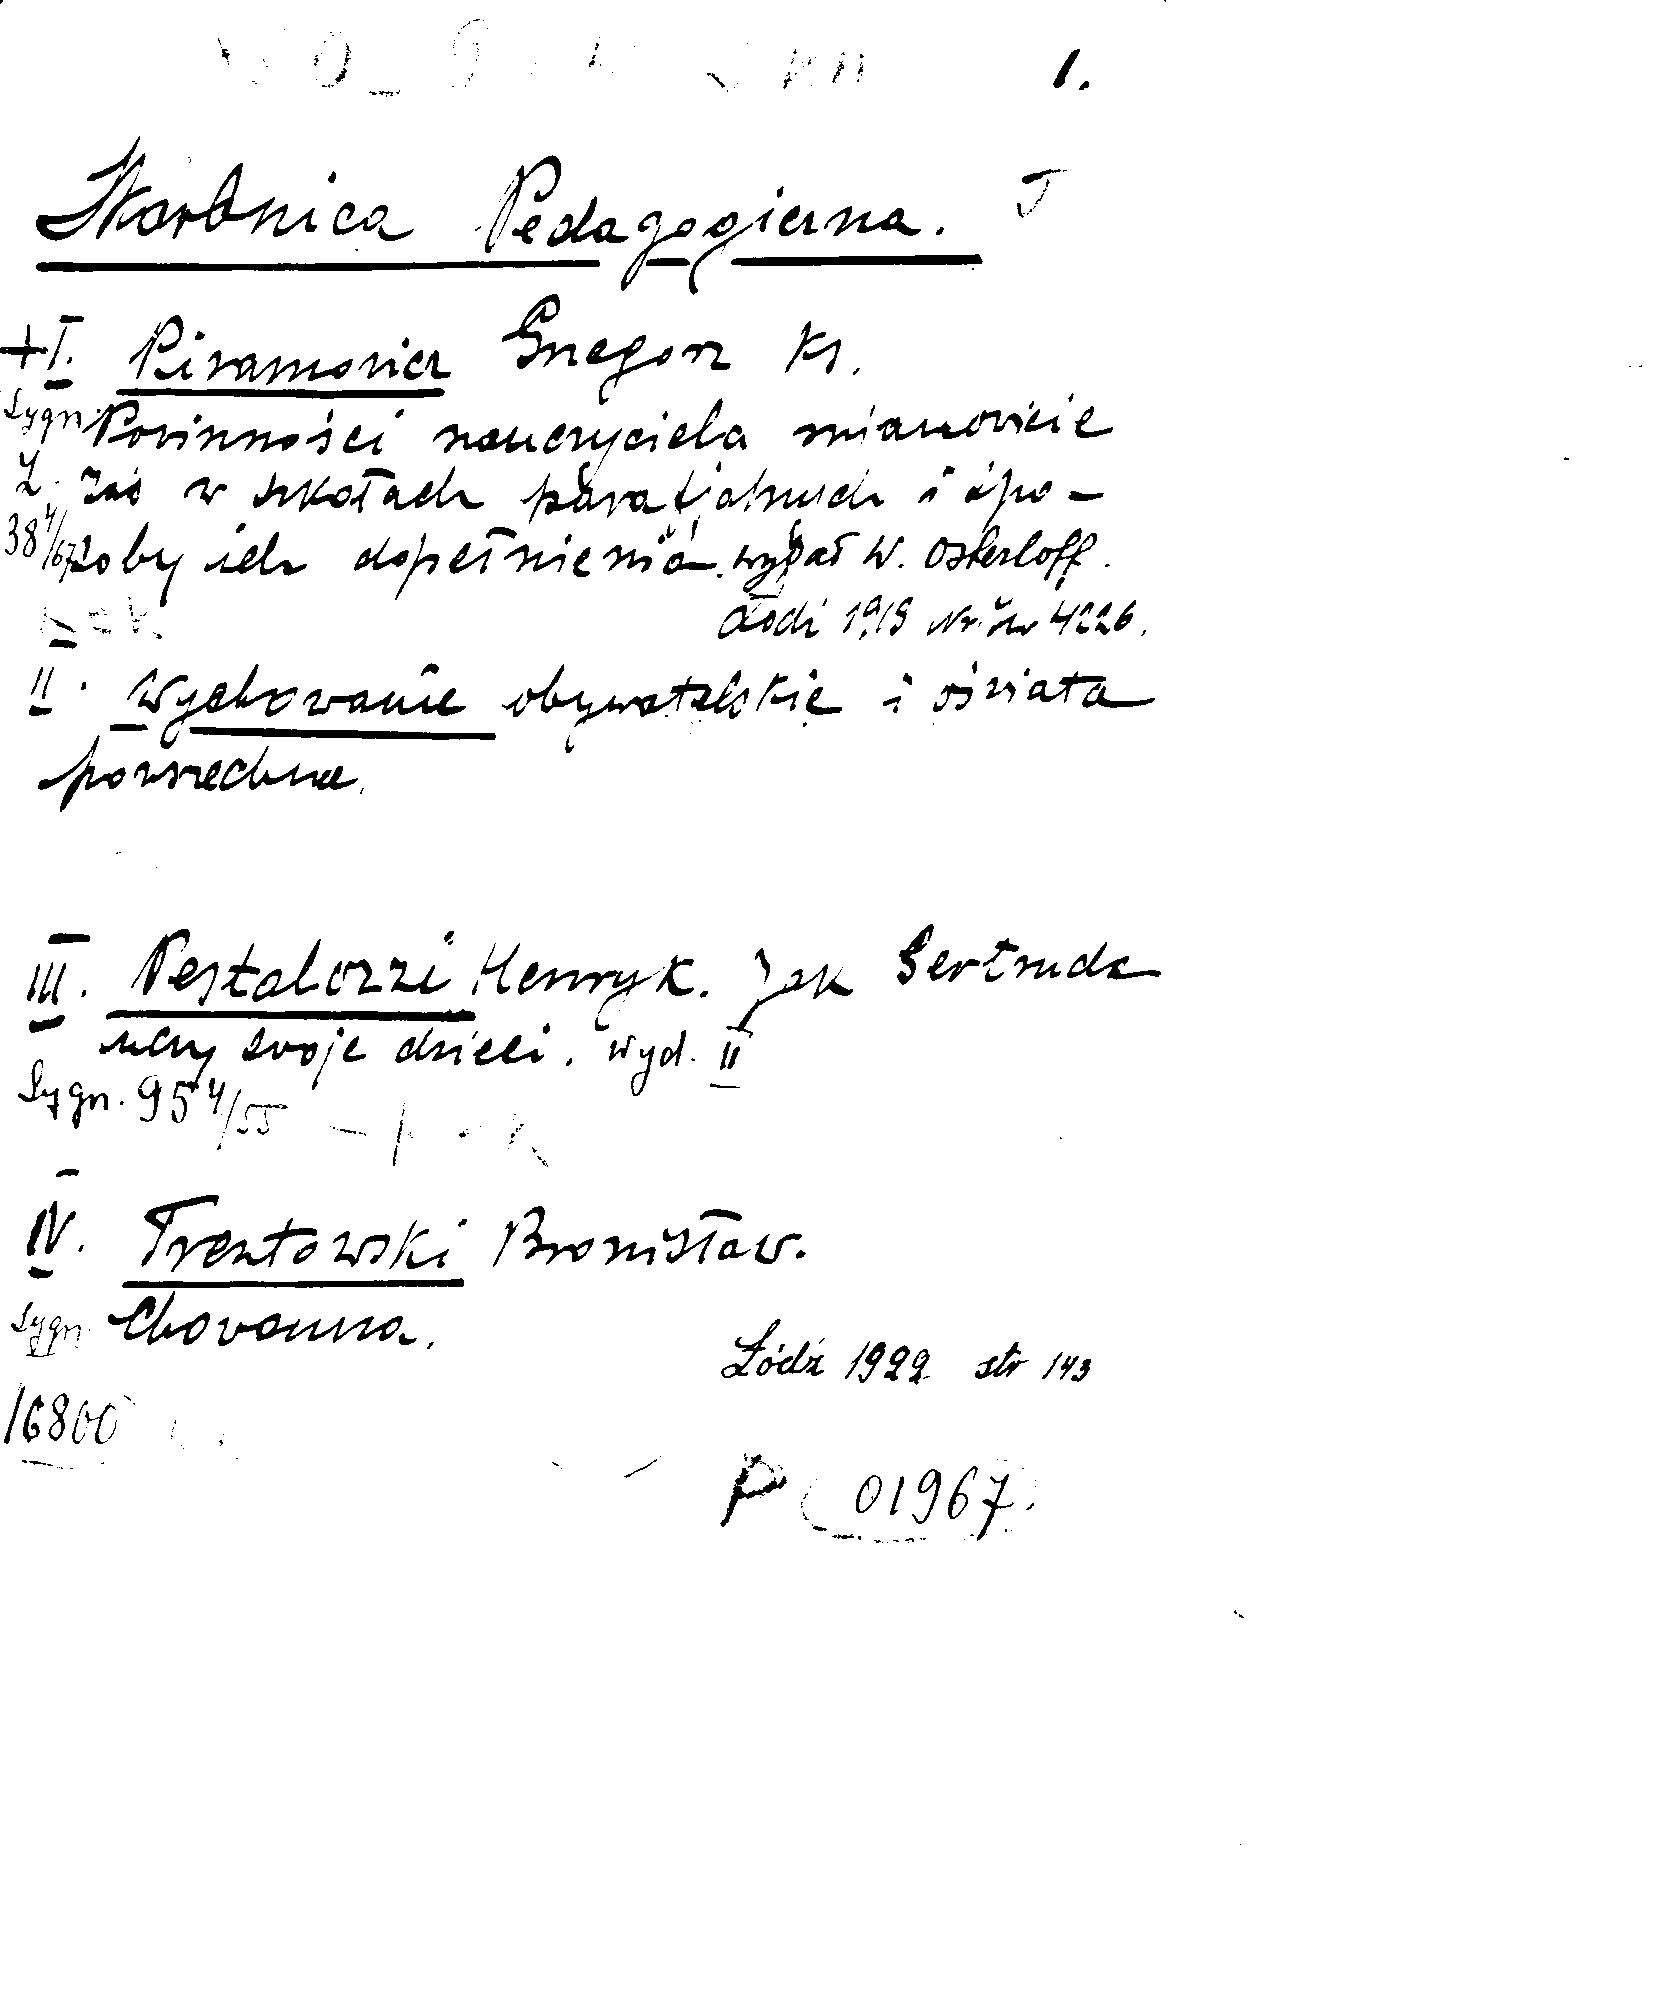 1.
Skarbnica Pedagogiczna. J
+ I. Piramowicz Grzegorz Ks.
Sygn. Powinności nauczyciela mianowicie
Z. zaś w szkołach parafjalnych i spo-
38 4/67 soby ich dopełnienia. wydał W. Osterloff.
Łódź 1919 Nr. inw 4226.
II. Wychowanie obywatelskie i oświata
powszechna.
III. Pestalozzi Henryk. Jak Gertruda
uczy swoje dzieci. Wyd. II
Sygn. 95 4/55
IV. Trentowski Bronisław.
Sygn. Chowanna.
Łódź 1922 str 143
16800
P 01967